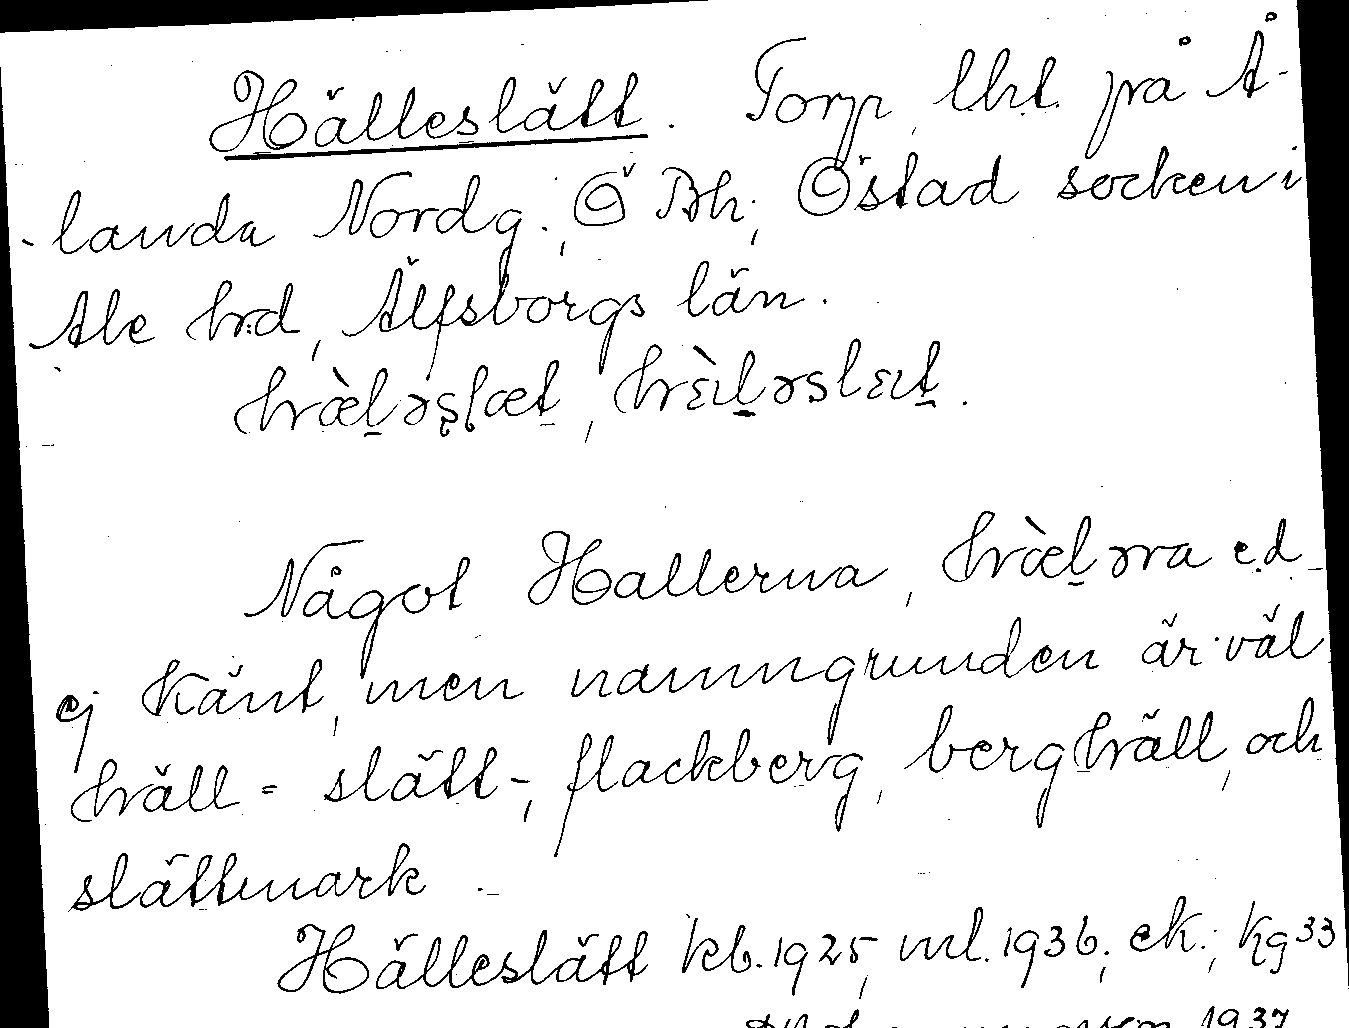 Hälleslätt. Torp, lht. på Å-
-landa Nordg., Ö Bh; Östad socken i
Ale hrd, Älfsborgs län.
hæ̀l̠əs̨læt̠, hɛ̀ıl̠əslɛıt̠.
Något Hallerna, hæ̀l̠əra e.d.
ej känt, men namngrunden är väl
häll = slätt-, flackberg, berghäll, och
slättmark.
Hälleslätt kb. 1925, ml. 1936; ek.; Kg 33
1937